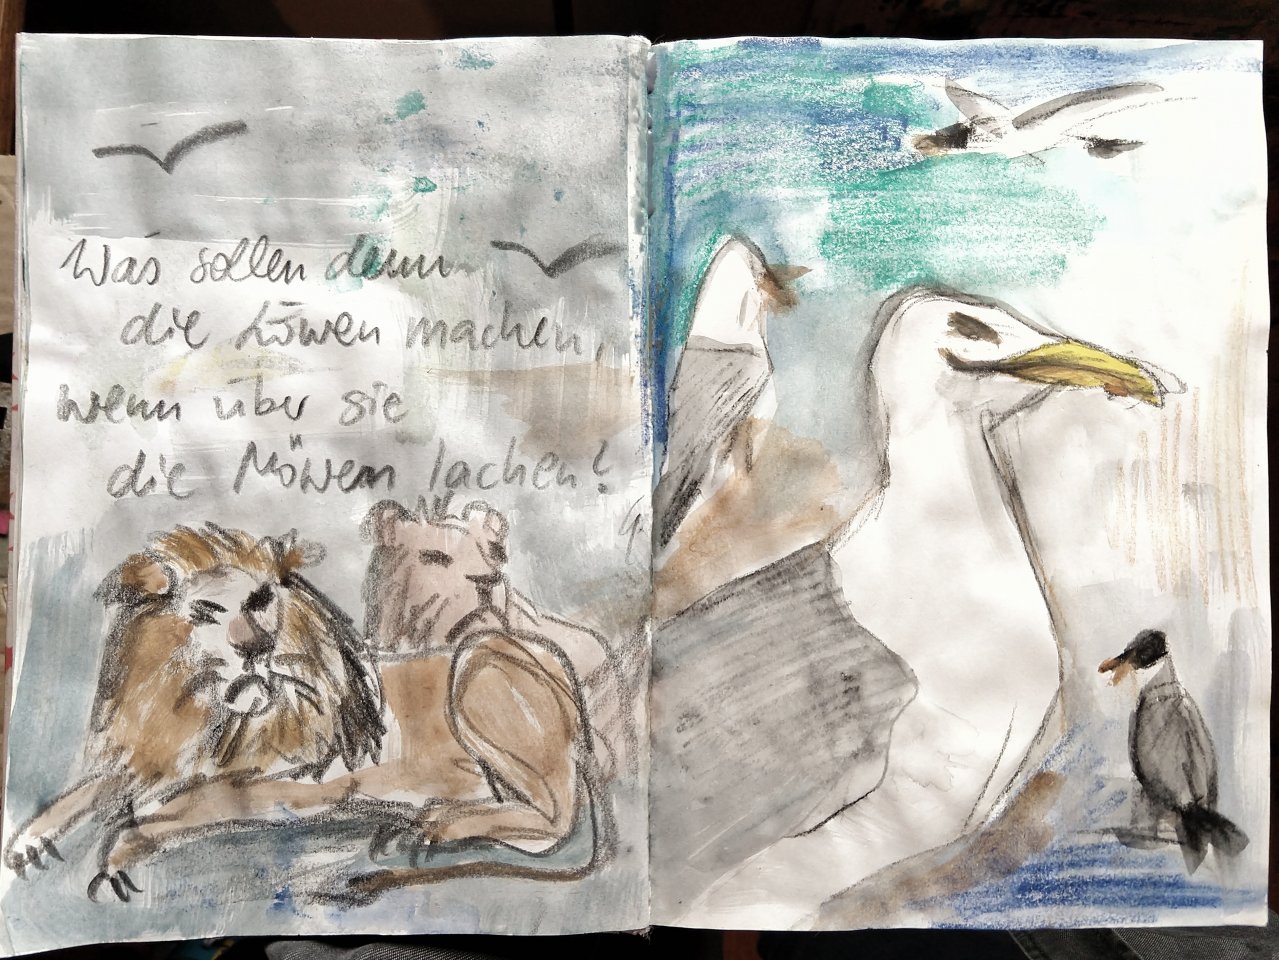 Was sollen denn
die Löwen machen,
wenn über sie
die Möwen lachen?